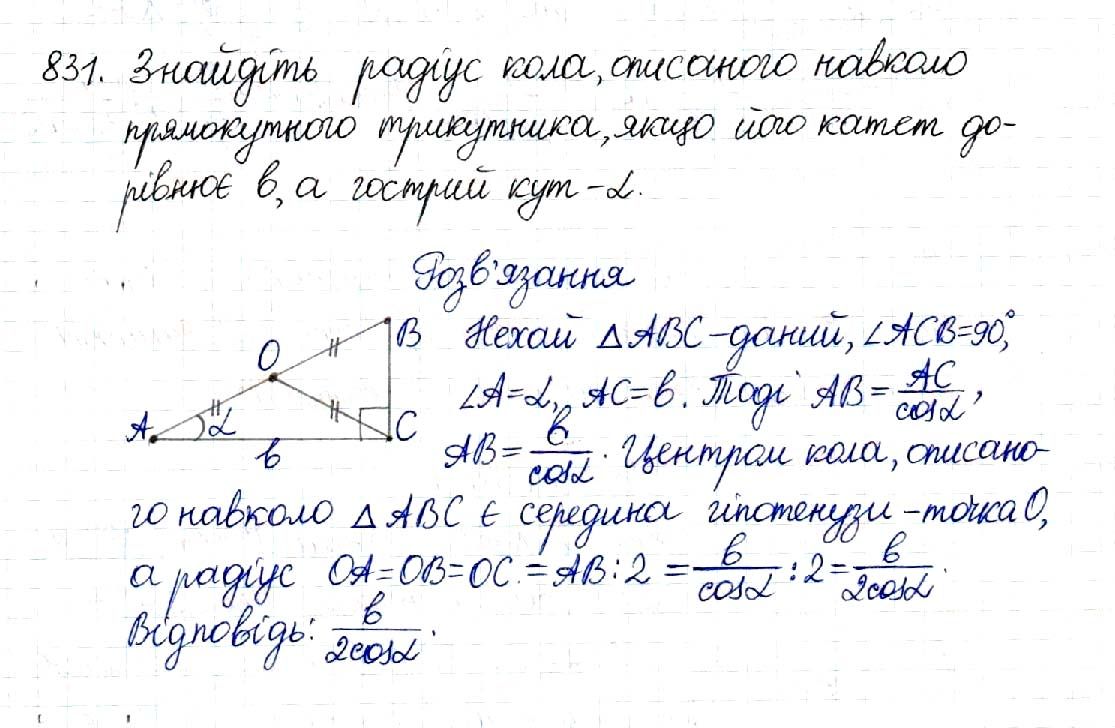 831. Знайдіть радіус кола, описаного навколо
прямокутного трикутника, якщо його катет до-
рівнює b, а гострий кут - α.
Розв'язання
B
O
A
α
C
b
Нехай △ABC - даний, ∠ACB=90°,
∠A=α, AC=b. Тоді AB = AC/cosα,
AB = b/cosα. Центром кола, описано-
го навколо △ABC є середина гіпотенузи - точка O,
а радіус OA=OB=OC = AB:2 = b/cosα : 2 = b/2cosα.
Відповідь: b/2cosα.